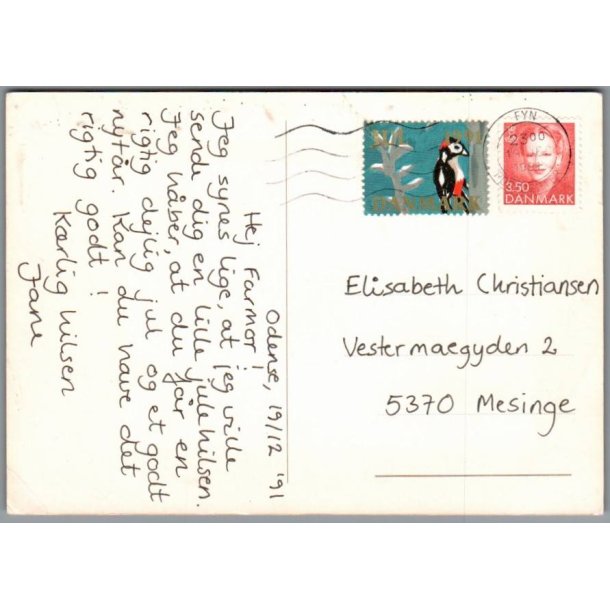 Odense, 19/12 '91
Hej Farmor!
Jeg synes lige, at jeg ville
sende dig en lille julehilsen.
Jeg håber, at du får en
rigtig dejlig jul og et godt
nytår. Kan du have det
rigtig godt!
Kærlig hilsen
Jane
FYN
2300
DANMARK
3.50
DANMARK
Elisabeth Christiansen
Vestermaegyden 2
5370 Mesinge